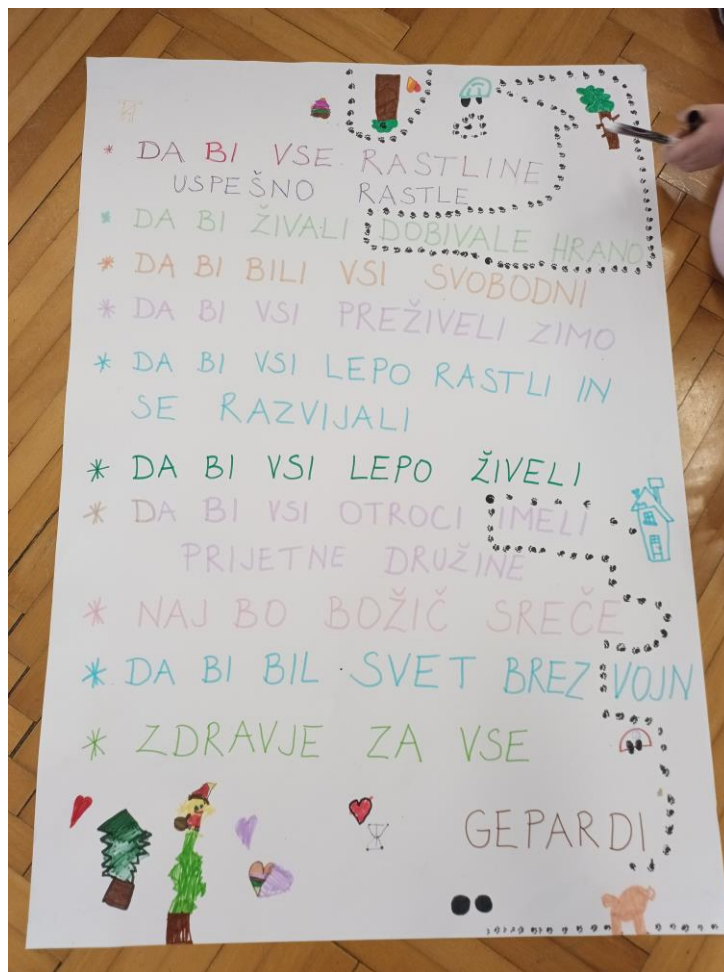 * DA BI VSE RASTLINE
USPEŠNO RASTLE
* DA BI ŽIVALI DOBIVALE HRANO
* DA BI BILI VSI SVOBODNI
* DA BI VSI PREŽIVELI ZIMO
* DA BI VSI LEPO RASTLI IN
SE RAZVIJALI
* DA BI VSI LEPO ŽIVELI
* DA BI VSI OTROCI IMELI
PRIJETNE DRUŽINE
* NAJ BO BOŽIČ SREČE
* DA BI BIL SVET BREZ VOJN
* ZDRAVJE ZA VSE
GEPARDI